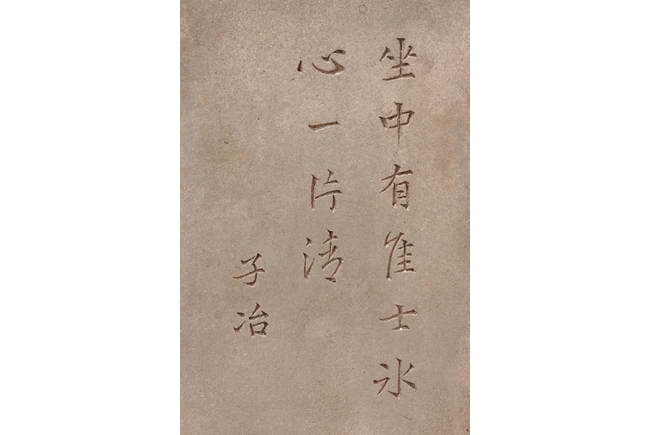 坐中有隹士氷
心一片清
子冶